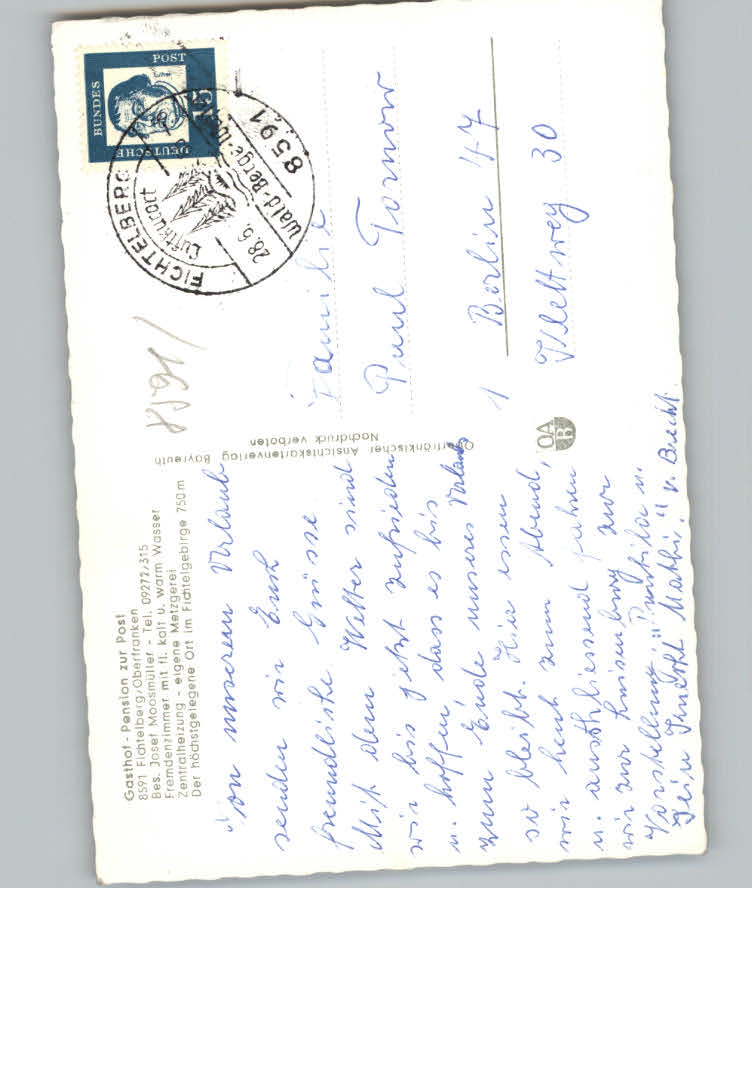 Gasthof - Pension zur Post
8591 Fichtelberg/Oberfranken
Bes. Josef Moosmüller - Tel. 09272/315
Fremdenzimmer mit fl. kalt u. warm Wasser
Zentralheizung - eigene Metzgerei
Der höchstgelegene Ort im Fichtelgebirge 750 m
Von unserem Urlaub
senden wir Euch
freundliche Grüsse
Mit dem Wetter sind
wir bis jetzt zufrieden
u. hoffen, dass es bis
zum Ende unseres Urlaubs
so bleibt. Hier essen
wir heut zum Abend,
u. anschliessend fahren
wir zur Luisenburg zur
Vorstellung: "Puntila u.
sein Knecht Matti." v. Brecht.
Oberfränkischer Ansichtskartenverlag Bayreuth
Nachdruck verboten
OA
B
8591
DEUTSCHE
BUNDES
POST
15
Luther
FICHTELBERG
Luftkurort
28.6.
8591
Familie
Paul Tornow
1 Berlin 47
30